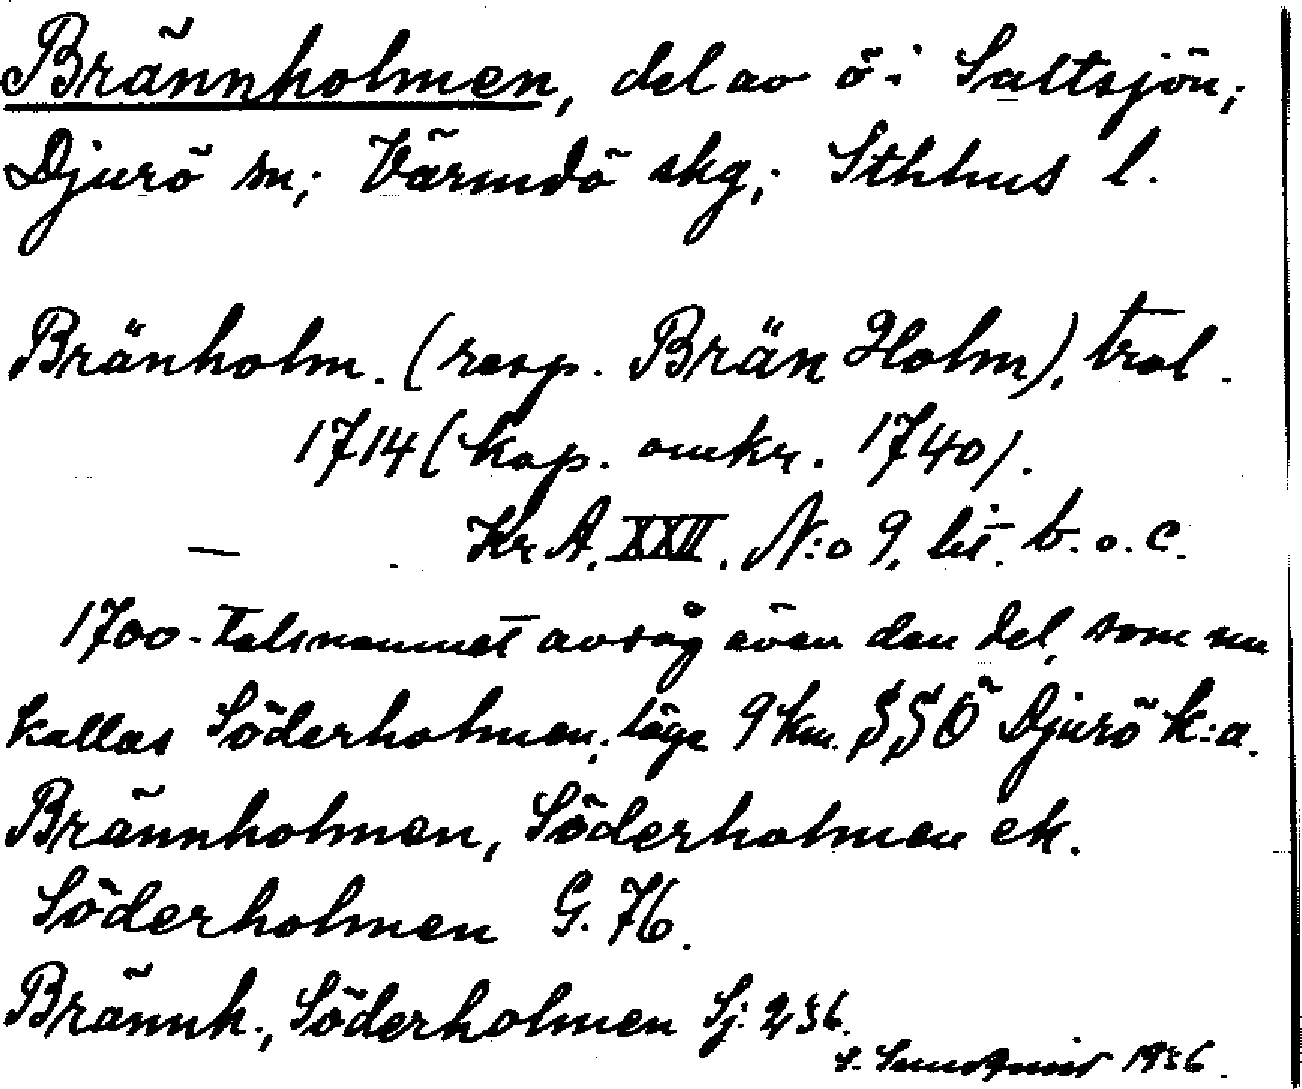 Brännholmen, del av ö i Saltsjön;
Djurö sn; Värmdö skg; Sthlms l.
Bränholm. (resp. Brän Holm), trol.
1714 (kop. omkr. 1740).
— KrA. XXII. N:o 9. lit. b. o. c.
1700-talsnamnet avsåg även den del, som nu
kallas Söderholmen; läge 9 km. SSÖ Djurö k:a.
Brännholmen, Söderholmen ek.
Söderholmen G. 76.
Brännh., Söderholmen Sj. 236.
1936.